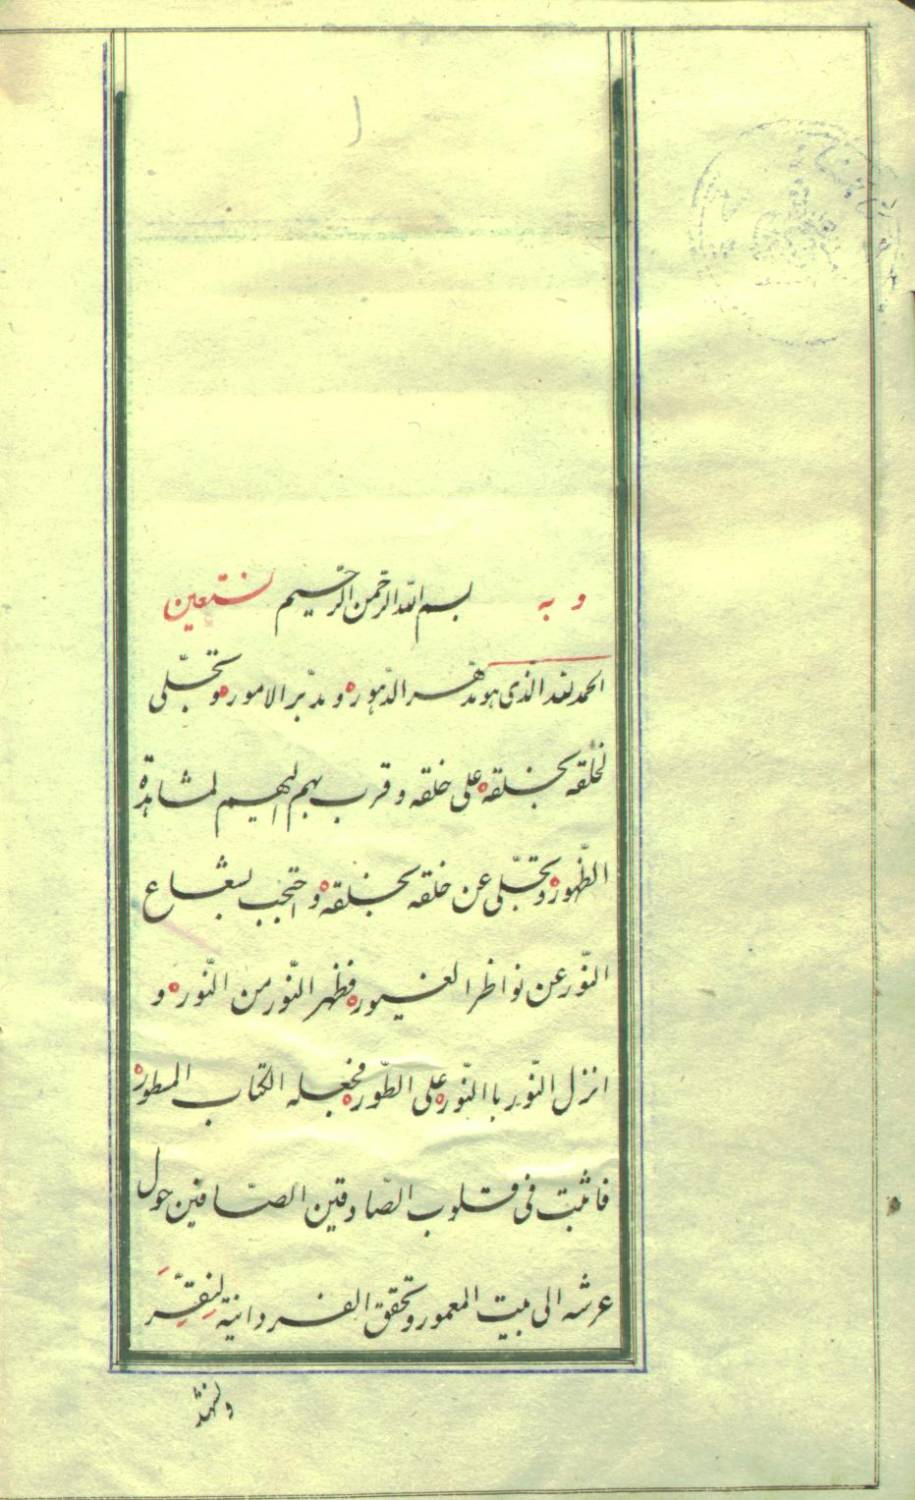 ١
و به بسم الله الرحمن الرحيم نستعين
الحمد لله الّذى هو مدهر الدّهور و مدبّر الامور و تجلّى
لخلقه بخلقه على خلقه و قرب بهم اليهم لمشاهدة
الظّهور و تجلّى عن خلقه بخلقه و احتجب بشعاع
النّور عن نواظر الغيور فظهر النّور من النّور و
انزل النّور باالنّور على الطّور فجعله الكتاب المسطور
فاثبت فى قلوب الصّادقين الصّافين حول
عرشه الى بيت المعمور و تحقق الفردانية لنقرّ
ولنشهد